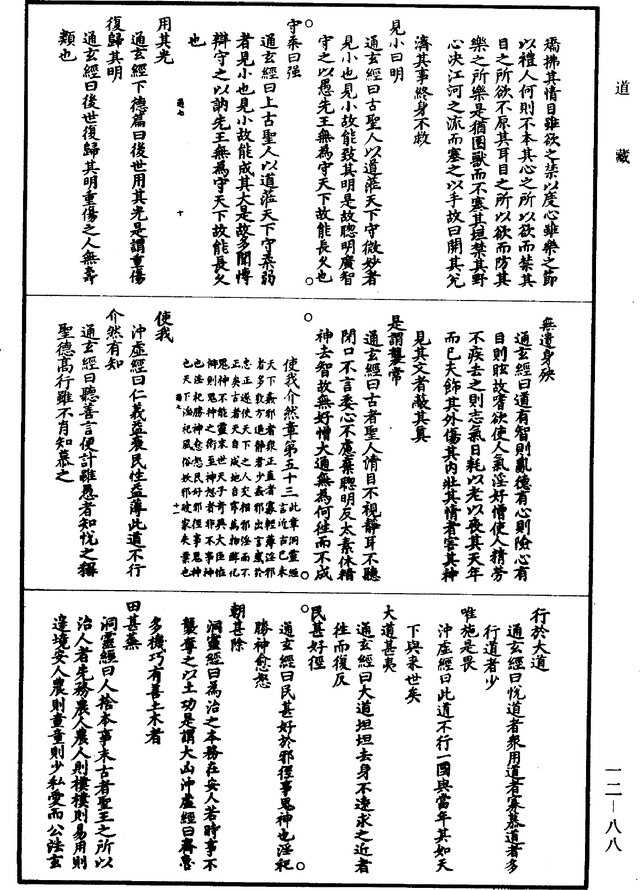 道藏
矯拂其情目雖欲之禁以度心雖樂之節
以禮人何則不本其心之所以欲而禁其
目之所欲不原其耳目之所以欲而防其
樂之所樂是猶圈獸而不塞其垣禁其野
心決江河之流而塞之以手故曰開其兌
濟其事終身不救
見小曰明
通玄經曰古聖人以道蒞天下守微妙者
見小也見小故能致其明是故聰明廣智
守之以愚先王無為守天下故能長久也
守柔曰强
通玄經曰上古聖人以道蒞天下守柔弱
者見小也見小故能成其大是故多聞博
辯守之以訥先王無為守天下故能長久
也
用其光
通玄經下德篇曰後世用其光是謂重傷
復歸其明
通玄經曰後世復歸其明重傷之人無壽
類也
無遺身殃
通玄經曰道有智則亂德有心則險心有
目則眩故嗜欲使人氣淫好憎使人精勞
不疾去之則志氣日耗以老以喪其天年
而已夫飾其外傷其內壯其情者害其神
見其文者蔽其真
是謂襲常
通玄經曰古者聖人情目不視靜耳不聽
閉口不言委心不慮棄聰明反太素休精
神去智故無好憎大通無為何往而不成
使我介然章第五十三
使我
沖虛經曰仁義益衰民性益薄此道不行
介然有知
通玄經曰聽善言便計雖愚者知悅之稱
聖德高行雖不肖知慕之
行於大道
通玄經曰悅道者衆用道者寡慕道者多
行道者少
唯施是畏
沖虛經曰此道不行一國與當年其如天
下與來世矣
大道甚夷
通玄經曰大道坦坦去身不遠求之近者
往而復反
民甚好徑
通玄經曰民甚好於邪徑事鬼神也淫祀
勝神愈怒
朝甚除
洞靈經曰為治之本務在安人若時事不
襲奪之以土功是謂大凶沖虛經曰齊魯
多機巧有善土木者
田甚蕪
洞靈經曰人捨本事末古者聖王之所以
治人者先務農人農人則樸樸則易用則
邊境安人農則童童則少私愛而公法玄
一二—八八